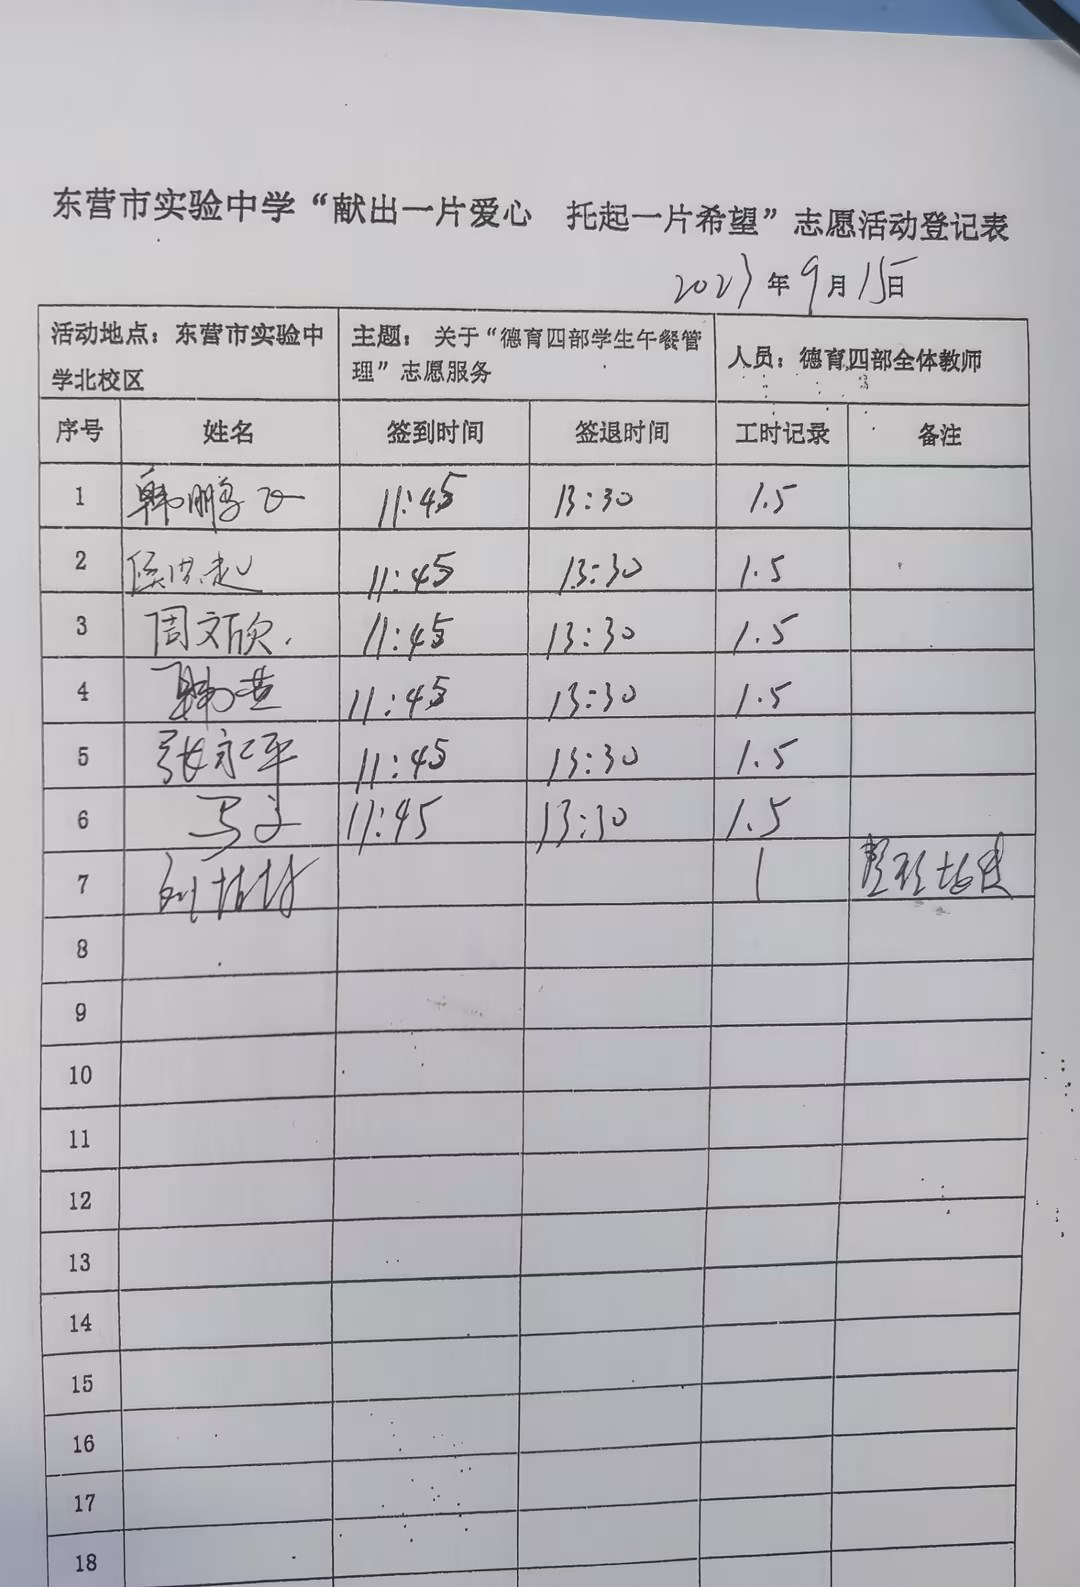 东营市实验中学“献出一片爱心 托起一片希望”志愿活动登记表
2023年9月15日
活动地点：东营市实验中学北校区 主题：关于“德育四部学生午餐管理”志愿服务 人员：德育四部全体教师
序号 姓名 签到时间 签退时间 工时记录 备注
1 韩鹏飞 11:45 13:30 1.5
2 侯洪起 11:45 13:30 1.5
3 周文欣 11:45 13:30 1.5
4 韩营 11:45 13:30 1.5
5 张永平 11:45 13:30 1.5
6 马文 11:45 13:30 1.5
7 刘 1 整理
8
9
10
11
12
13
14
15
16
17
18